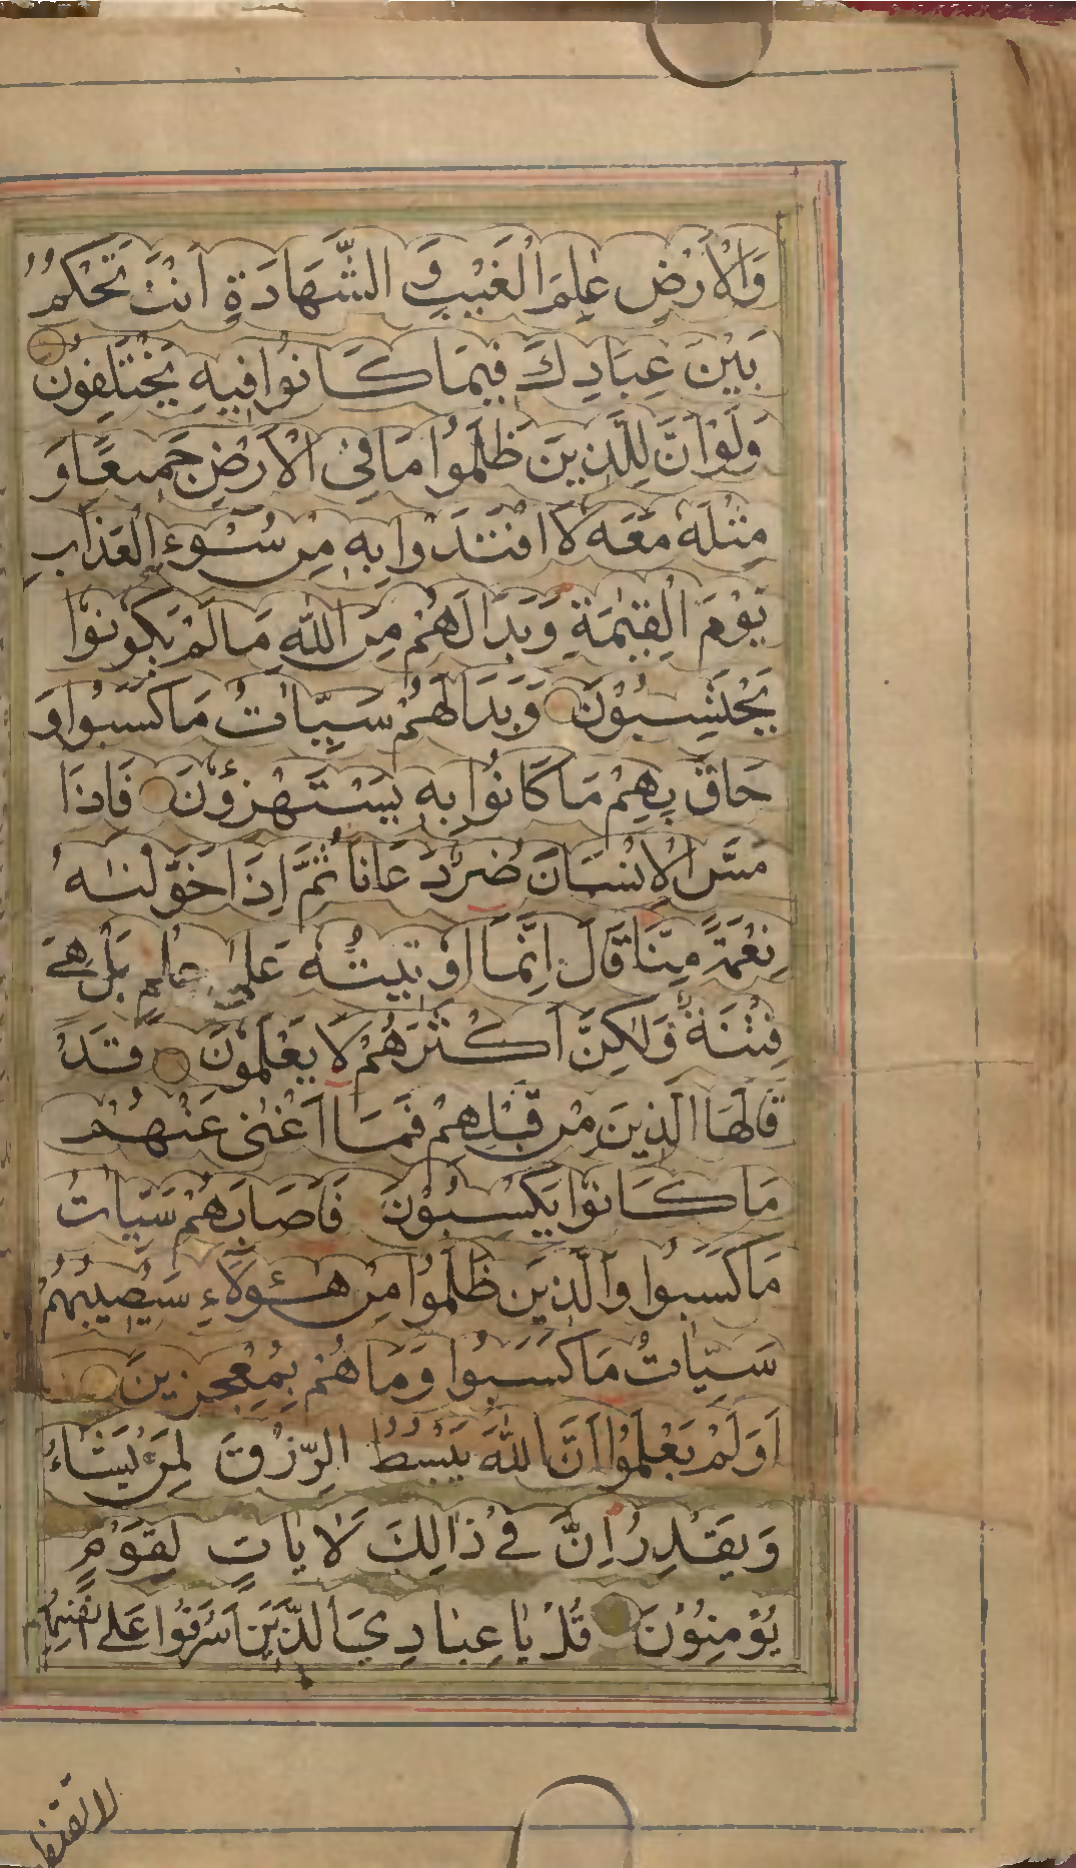 وَالْاَرْضِ عٰلِمَ الْغَيْبِ وَ الشَّهَادَةِ اَنْتَ تَحْكُمُ
بَيْنَ عِبَادِكَ فِيمَا كَانُوا فِيهِ يَخْتَلِفُونَ
وَلَوْ اَنَّ لِلَّذِينَ ظَلَمُوا مَا فِى الْاَرْضِ جَمِيعًا وَ
مِثْلَهُ مَعَهُ لَافْتَدَوْا بِهِ مِنْ سُوءِ الْعَذَابِ
يَوْمَ الْقِيٰمَةِ وَبَدَا لَهُمْ مِنَ اللّٰهِ مَا لَمْ يَكُونُوا
يَحْتَسِبُوْنَ وَبَدَا لَهُمْ سَيِّاٰتُ مَا كَسَبُوا وَ
حَاقَ بِهِمْ مَا كَانُوا بِهِ يَسْتَهْزِؤُنَ فَاِذَا
مَسَّ الْاِنْسَانَ ضُرٌّ دَعَانَا ثُمَّ اِذَا خَوَّلْنٰهُ
نِعْمَةً مِنَّا قَالَ اِنَّمَا اُوْتِيتُهُ عَلٰى عِلْمٍ بَلْ هِىَ
فِتْنَةٌ وَلٰكِنَّ اَكْثَرَهُمْ لَا يَعْلَمُونَ قَدْ
قَالَهَا الَّذِينَ مِنْ قَبْلِهِمْ فَمَا اَغْنٰى عَنْهُمْ
مَا كَانُوا يَكْسِبُوْنَ فَاَصَابَهُمْ سَيِّاٰتُ
مَا كَسَبُوا وَالَّذِينَ ظَلَمُوا مِنْ هٰؤُلَاءِ سَيُصِيبُهُمْ
سَيِّاٰتُ مَا كَسَبُوا وَمَا هُمْ بِمُعْجِزِينَ
اَوَلَمْ يَعْلَمُوا اَنَّ اللّٰهَ يَبْسُطُ الرِّزْقَ لِمَنْ يَشَاءُ
وَيَقْدِرُ اِنَّ فِى ذَالِكَ لَاٰيَاتٍ لِقَوْمٍ
يُؤْمِنُوْنَ قُلْ يَا عِبَادِيَ الَّذِينَ اَسْرَفُوا عَلٰى اَنْفُسِهِمْ
لا تقنطوا